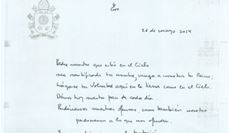 26 de marzo 2014
Padre nuestro que estás en el Cielo
sea santificado tu nombre, venga a nosotros tu Reino,
hágase tu Voluntad aquí en la tierra como en el Cielo.
Danos hoy nuestro pan de cada día.
Perdónanos nuestras ofensas como también nosotros
perdonamos a los que nos ofenden.